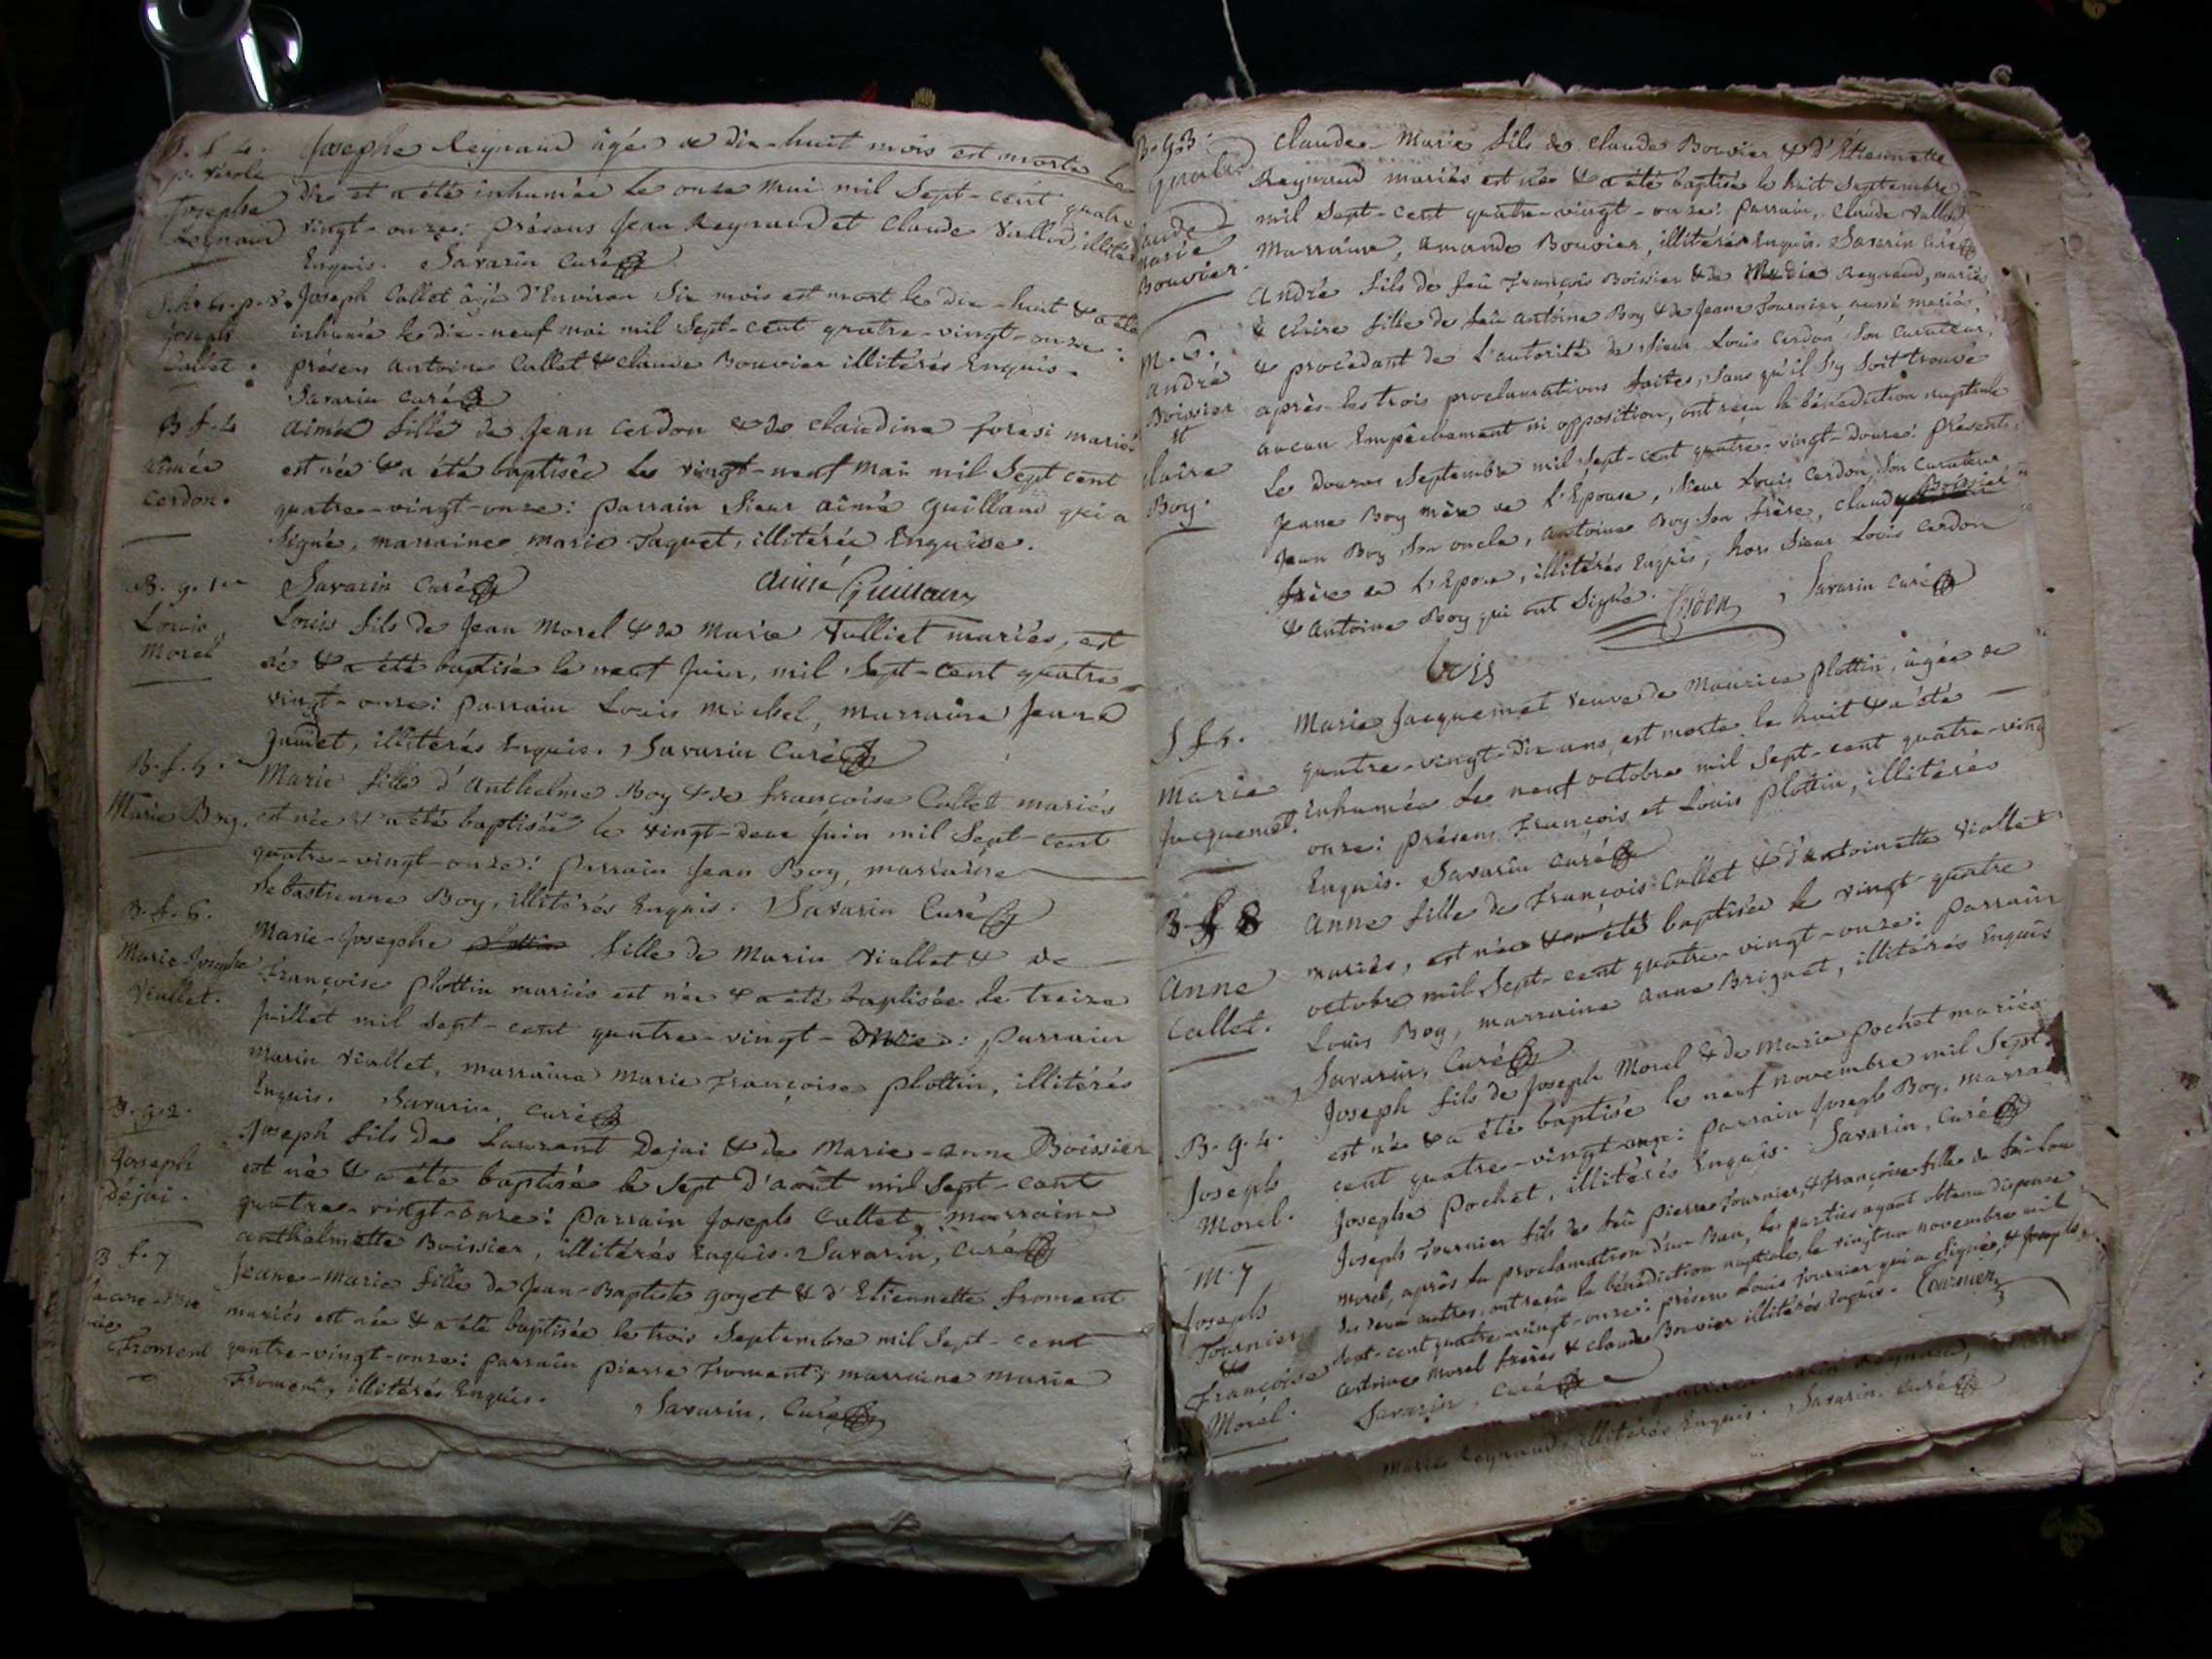 S. f. 4.
p. vérole
Josephe
Reynaud
Josephe Reynaud âgée de dix-huit mois est morte le
dix et a été inhumée le onze mai mil Sept-cent quatre
vingt-onze: présens Jean Reynaud et Claude Vallod illitér
Enquis. Savarin Curé
Joseph
Callet
Joseph Callet âgé d'Environ Six mois est mort le dix-huit & a été
inhumé le dix-neuf mai mil Sept-cent quatre-vingt-onze:
présen antoine Callet & claude Bouvier illitérés Enquis.
Savarin curé
B f. 4
aimée
Cerdon.
aimée fille de Jean Cerdon & de claudine forasi mariés
est née & a été baptisée le vingt-neuf Mai mil Sept cent
quatre-vingt-onze: parrain Sieur aimé guilland qui a
Signé, marraine marie Jaquet, illitérée Enquise.
Savarin Curé aimé Guilland
B. g. 1er
Louis
Morel
Louis fils de Jean Morel & de Marie Vulliet mariés, est
né & a été baptisé le neuf Juin, mil Sept-cent quatre
vingt-onze: parrain Louis Michel, marraine Jeane
Jandet, illitérés Enquis. Savarin Curé
B. f. 5.
Marie Boy.
Marie fille d'Anthelme Boy & de françoise Callet mariés
est née & a été baptisée le vingt-deux Juin mil Sept-cent
quatre-vingt-onze: parrain Jean Boy, marraine
Sebastienne Boy, illitérés Enquis. Savarin Curé
B. f. 6.
Marie-Josephe
Viallet.
Marie-Josephe plottin fille de Marin Viallet & de
Françoise plottin mariés est née & a été baptisée le treize
Juillet mil Sept-cent quatre-vingt-onze: parrain
Marin Viallet, marraine Marie Françoise plottin, illitérés
Enquis. Savarin, curé
B. g. 2.
Joseph
Déjai.
Joseph fils de Laurent Dejai & de Marie-anne Boissier
est né & a été baptisé le Sept d'août mil Sept-cent
quatre-vingt-onze: parrain Joseph Callet, marraine
anthelmette Boissier, illitérés Enquis. Savarin, Curé
B f. 7
Jeane-Ma
rie
Froment
Jeane-Marie fille de Jean-Baptiste goyet & d'Etiennette froment
mariés est née & a été baptisée le trois Septembre mil Sept-cent
quatre-vingt-onze: parrain pierre Froment, marraine marie
Froment, illitérés Enquis. Savarin, Curé
B. g. 3.
Claude
Marie
Bouvier.
Claude-Marie fils de claude Bouvier & d'Etiennette
Reynaud mariés est né & a été baptisé le huit Septembre
mil Sept-cent quatre-vingt-onze: parrain, Claude Vallod
Marraine, amande Bouvier, illitérés Enquis. Savarin Curé
m. 6.
André
Boissier
et
claire
Boy.
André fils de feu François Boissier & de Marie Reynaud, mariés
& claire fille de feu antoine Boy & de Jeane Fournier, aussi mariés,
& procédant de l'autorité de Sieur Louis Cerdon Son Curateur,
après les trois proclamations faites, Sans qu'il S'y Soit trouvé
aucun Empêchement ni opposition, ont reçu la bénédiction nuptiale
le douze Septembre mil Sept-cent quatre-vingt-douze: présents:
Jeane Boy mère de l'Epouse, Sieur Louis Cerdon, Son Curateur
Jean Boy Son oncle, antoine Boy Son frère, claude Boissier
frère de l'Epoux, illitérés Enquis, hors Sieur Louis Cerdon
& Antoine Boy qui ont Signé. Cerdon, Savarin curé
bois
S f 5.
Marie
Jacquemet.
Marie Jacquemet veuve de Maurice plottin, âgée de
quatre-vingt-dix ans, est morte le huit & a été
inhumée le neuf octobre mil Sept-cent quatre-ving
onze: présens François et Louis plottin, illitérés
Enquis. Savarin curé
B f 8
Anne
Callet.
Anne fille de François Callet & d'antoinette Viallet
mariés, est née & a été baptisée le vingt quatre
octobre mil Sept-cent quatre-vingt-onze: parrain
Louis Boy, marraine anne Briquet, illitérés Enquis
Savarin, Curé
B. g. 4.
Joseph
Morel.
Joseph fils de Joseph Morel & de Marie pochet mariés
est né & a été baptisé le neuf novembre mil Sept
cent quatre-vingt-onze: parrain Joseph Boy, marra
Josephe pochet, illitérés Enquis. Savarin, Curé
m. 7
Joseph
Fournier
&
Françoise
Morel.
Joseph Fournier fils de feu pierre Fournier, & Françoise fille de feu Lou
Morel, après la proclamation d'un Ban, les parties ayant obtenu dispense
des deux autres, ont reçu la bénédiction nuptiale, le vingt un novembre mil
Sept-cent quatre-vingt-onze: présens Louis Fournier qui a Signé, & Joseph
Morel frères & claude Bouvier illitérés Enquis. Fournier
Savarin, Curé
Marie Reynaud, illitérés Enquis. Savarin, Curé